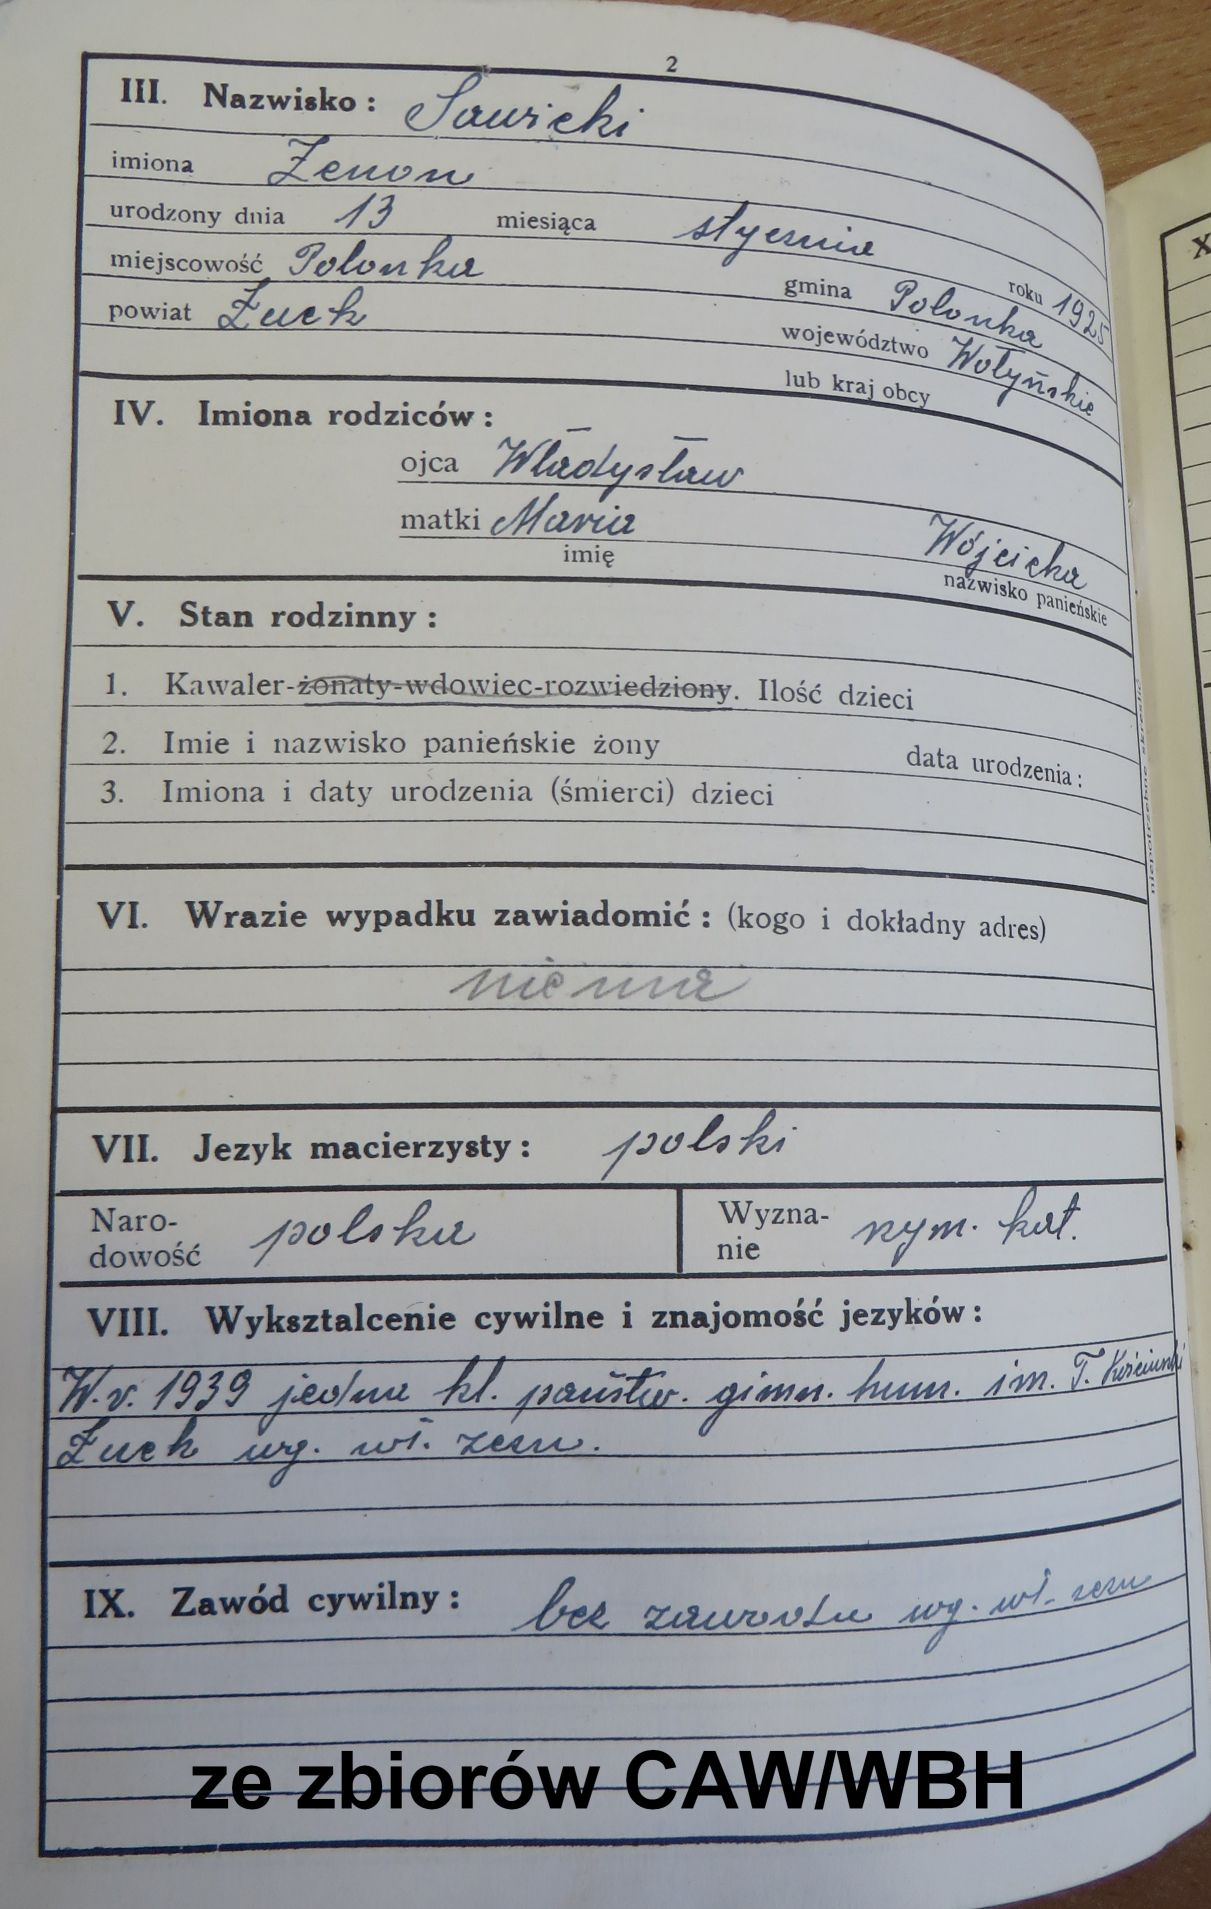 2
III. Nazwisko: Sawicki
imiona Zenon
urodzony dnia 13 miesiąca stycznia roku 1925
miejscowość Połonka gmina Połonka
powiat Łuck województwo Wołyńskie
lub kraj obcy
IV. Imiona rodziców:
ojca Władysław
matki Maria Wójcicka
imię nazwisko panieńskie
V. Stan rodzinny:
1. Kawaler-żonaty-wdowiec-rozwiedziony. Ilość dzieci
2. Imie i nazwisko panieńskie żony data urodzenia:
3. Imiona i daty urodzenia (śmierci) dzieci
niepotrzebne skreślić
VI. Wrazie wypadku zawiadomić: (kogo i dokładny adres)
nie ma
VII. Jezyk macierzysty: polski
Naro-
dowość polska
Wyzna-
nie rzym. kat.
VIII. Wyksztalcenie cywilne i znajomość jezyków:
W.r. 1939 jedna kl. państw. gimn. hum. im. T. Kościuszki
Łuck wg. wł. zezn.
IX. Zawód cywilny: bez zawodu wg. wł. zezn
X
ze zbiorów CAW/WBH